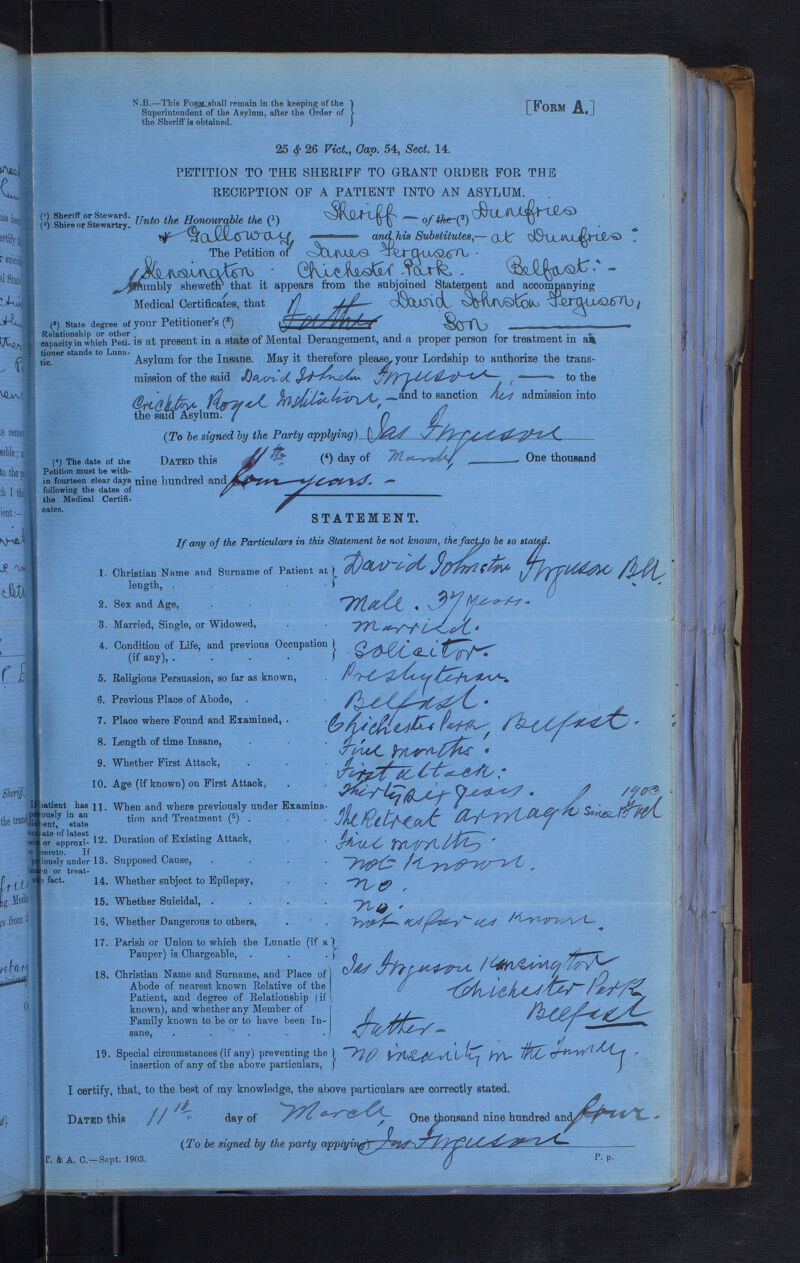 N.B.—This FORM shall remain in the keeping of the
Superintendent of the Asylum, after the Order of
the Sheriff is obtained.
[FORM A.]
25 & 26 Vict., Cap. 54, Sect. 14.
PETITION TO THE SHERIFF TO GRANT ORDER FOR THE
RECEPTION OF A PATIENT INTO AN ASYLUM.
(¹) Sheriff or Steward.
(²) Shire or Stewartry.
Unto the Honourable the (¹) Sheriff — of the (²) Dumfries
& Galloway, — and his Substitutes,— at Dumfries.
The Petition of James Ferguson -
Kensington - Chichester Park. Belfast. -
Humbly sheweth that it appears from the subjoined Statement and accompanying
Medical Certificates, that David Johnston Ferguson,
(³) State degree of
Relationship or other
capacity in which Peti-
tioner stands to Luna-
tic.
your Petitioner's (³) Father Son
is at present in a state of Mental Derangement, and a proper person for treatment in an
Asylum for the Insane. May it therefore please your Lordship to authorize the trans-
mission of the said David Johnston Ferguson, — to the
Crichton Royal Institution, — and to sanction his admission into
the said Asylum.
(To be signed by the Party applying) Jas Ferguson
(⁴) The date of the
Petition must be with-
in fourteen clear days
following the dates of
the Medical Certifi-
cates.
DATED this 11th (⁴) day of March, One thousand
nine hundred and four years. -
STATEMENT.
If any of the Particulars in this Statement be not known, the fact to be so stated.
1. Christian Name and Surname of Patient at
length, . David Johnston Ferguson B.A.
2. Sex and Age, Male. 37 years.
3. Married, Single, or Widowed, married.
4. Condition of Life, and previous Occupation
(if any), . Solicitor.
5. Religious Persuasion, so far as known, Presbyterian.
6. Previous Place of Abode, . Belfast.
7. Place where Found and Examined, . Chichester Park, Belfast.
8. Length of time Insane, Five months.
9. Whether First Attack, First attack.
10. Age (if known) on First Attack, Thirty six years.
11. When and where previously under Examina-
tion and Treatment (⁵) . The Retreat Armagh since 1st Oct 1903
12. Duration of Existing Attack, Five months
13. Supposed Cause, not known.
14. Whether subject to Epilepsy, no.
15. Whether Suicidal, . no.
16. Whether Dangerous to others, not as far as known.
17. Parish or Union to which the Lunatic (if a
Pauper) is Chargeable, .
18. Christian Name and Surname, and Place of
Abode of nearest known Relative of the
Patient, and degree of Relationship (if
known), and whether any Member of
Family known to be or to have been In-
sane,
Jas Ferguson Kensington
Chichester Park
Belfast
Father -
19. Special circumstances (if any) preventing the
insertion of any of the above particulars,
no insanity in the Family.
I certify, that, to the best of my knowledge, the above particulars are correctly stated.
DATED this 11th day of March One thousand nine hundred and four.
(To be signed by the party applying) Jas Ferguson
& A. C.—Sept. 1903.
P. p.